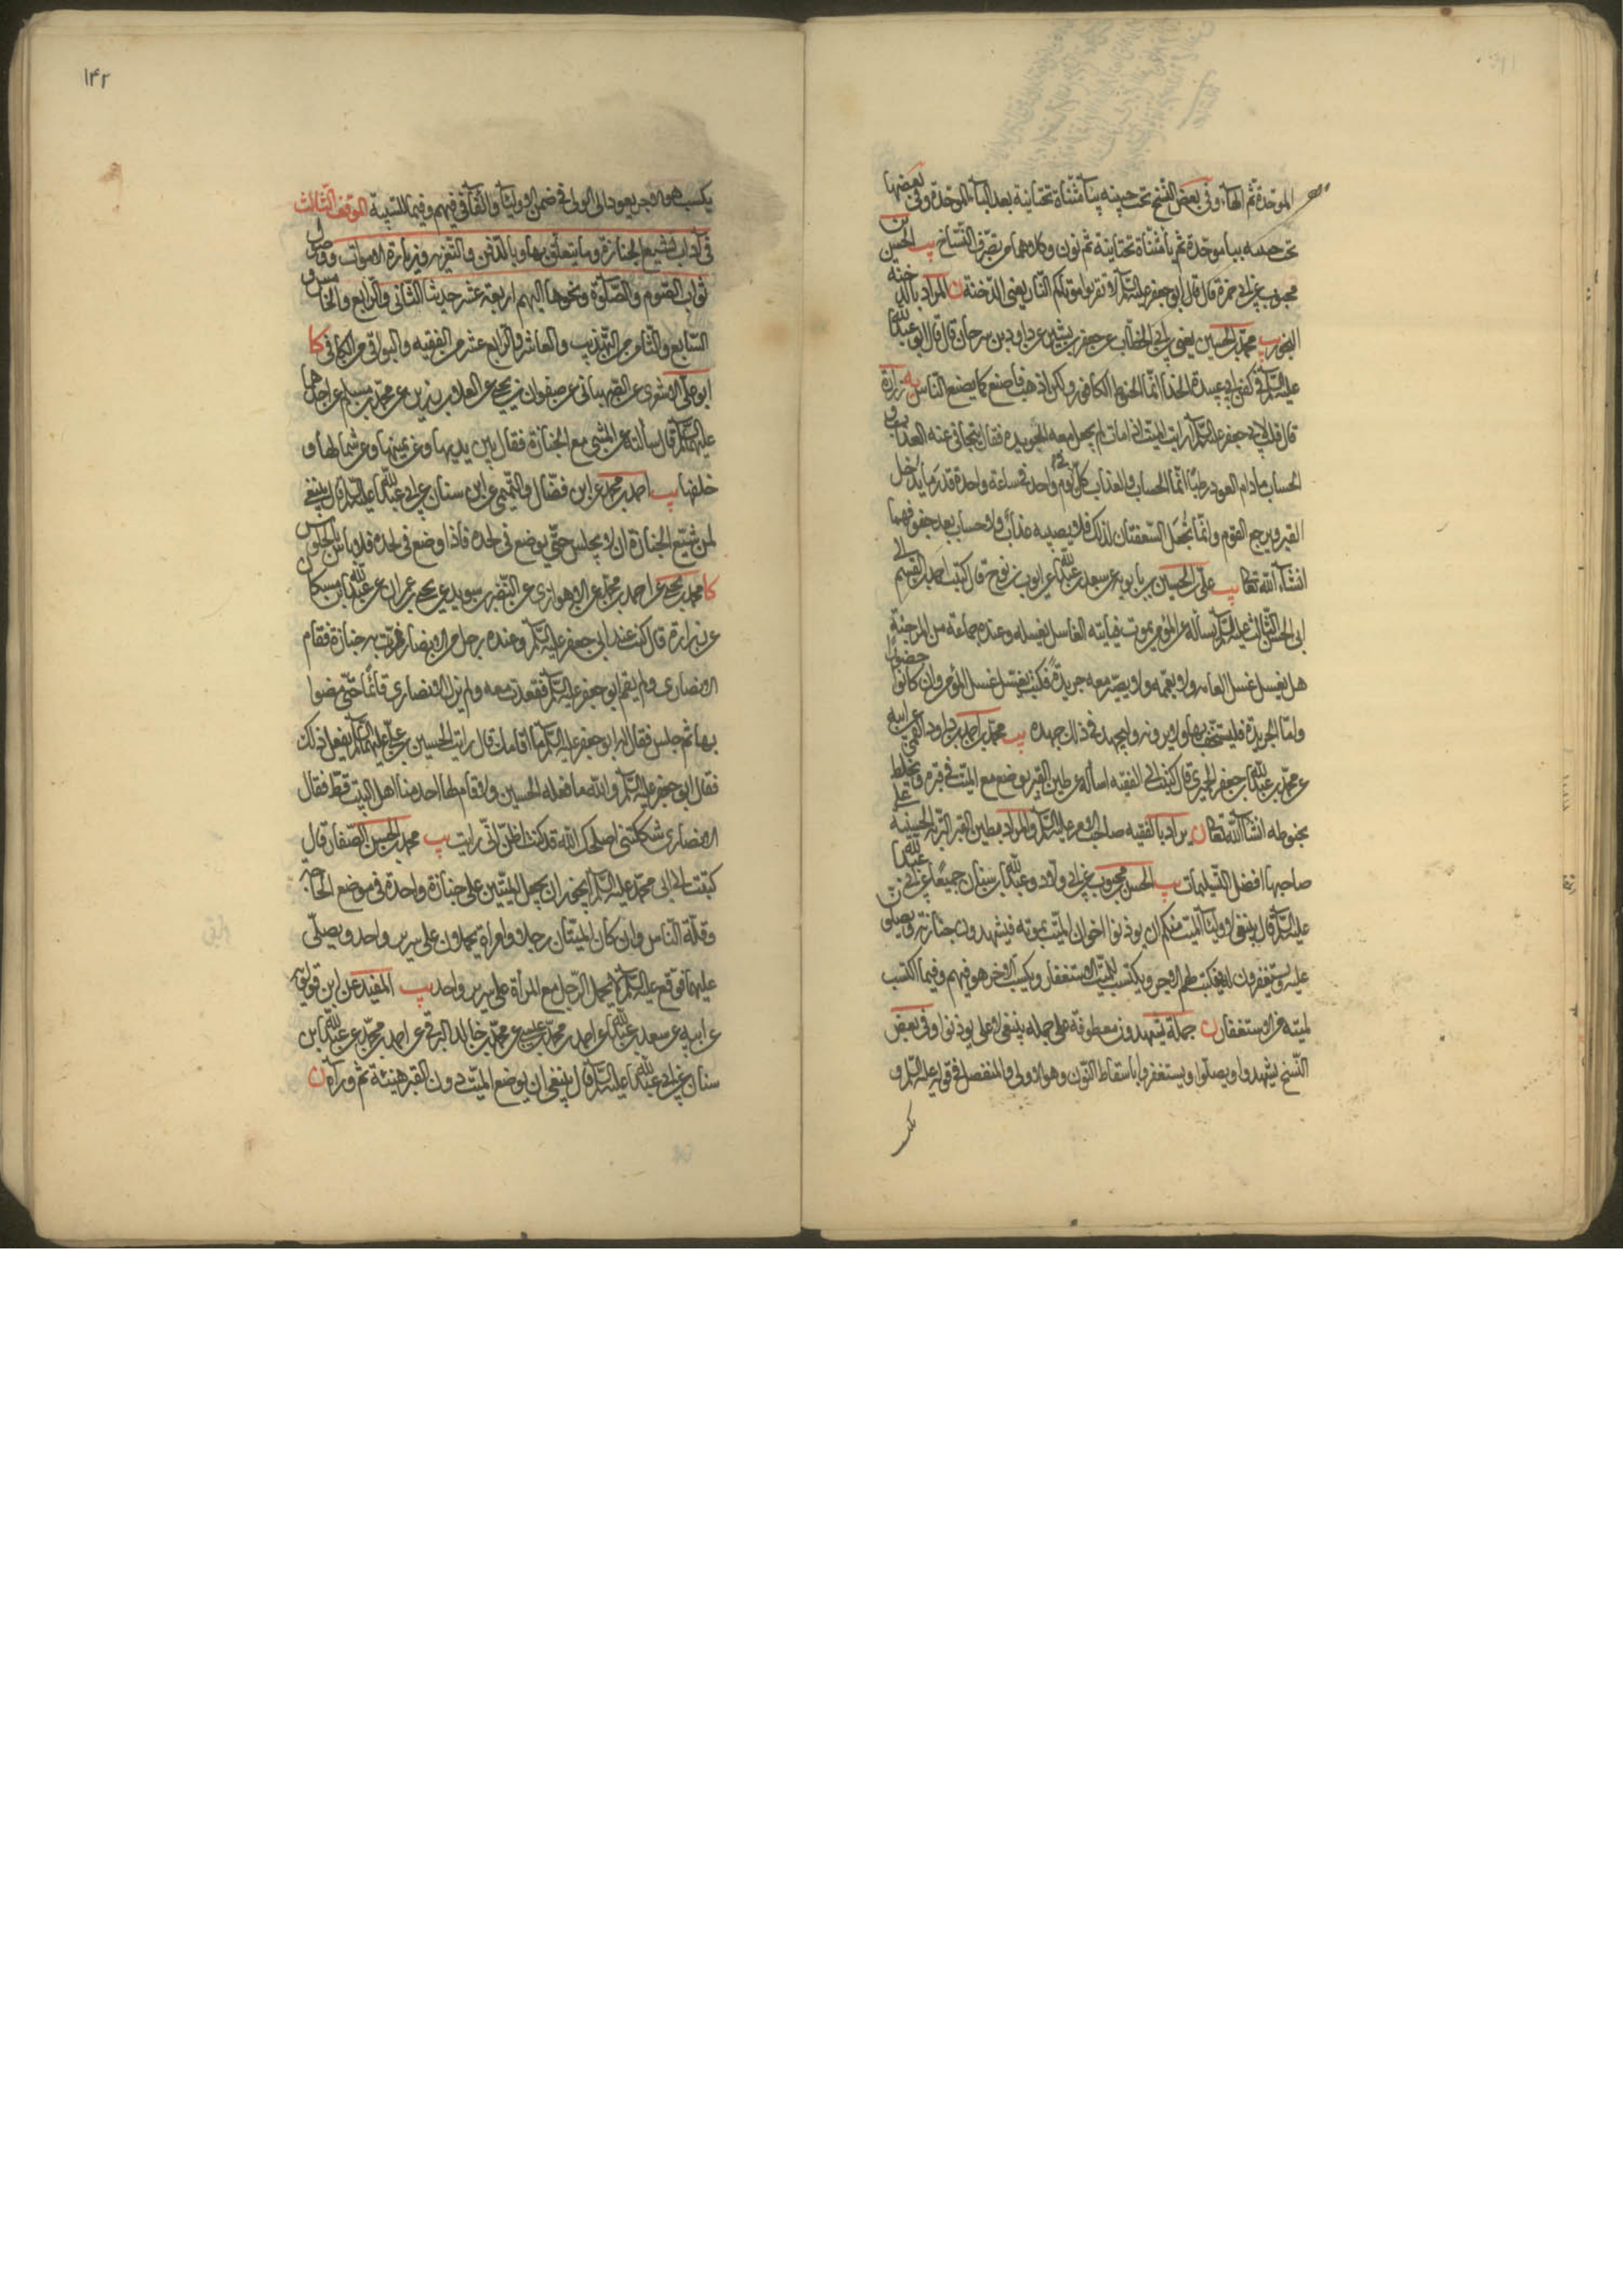 الموحّدة ثم الهاء وفى بعض النسخ تحت حبينه بيآء مثنّاة تحتانية بعد الباء الموحّدة وفى بعضها
تحت جبينه ببا موحّدة ثم يا مثنّاة تحتانية ثم نون وكلاهما من تصرّف النسّاخ يب الحسن بن
محبوب عن ابى حمزة قال قال ابو جعفر عليه السّلم لا تقربوا موتاكم النّار يعنى الدّخنة ن المراد بالدّخنة
البخور يب محمّد بن الحسين يعنى ابن ابى الخطّاب عن جعفر بن بشير عن داود بن سرحان قال قال ابو عبد الله
عليه السّلم فى كفن ابى عبيدة الحذّا انّما الحنوط الكافور ولكن اذهب فاصنع كما يصنع النّاس يه زرارة
قال قلت لابى جعفر عليه السّلم ارايت الميّت اذا مات لم يجعل معه الجريدة فقال يتجافى عنه العذاب و
الحساب مادام العود رطبًا انّما الحساب والعذاب كلّه فى يوم واحد فى ساعة واحدة قدر ما يدخل
القبر ويرجع القوم وانّما تُجعل السّعفتان لذلك فلا يصيبه عذاب ولا حساب بعد جفوفهما
انشاء الله تعالى يب علىّ بن الحسين بن بابويه عن سعد بن عبد الله عن ايوب بن نوح قال كتب احمد بن القسم الى
ابى الحسن الثالث عليه السّلم يسأله عن المؤمن يموت فياتيه الغاسل يغسله وعنده جماعة من المرجئة
هل يغسل غسل العامة ولا يعمّمه ولا يصيّر معه جريدةً فكتب يغسّل غسل المؤمن وان كانوا حضورًا
وامّا الجريدة فليستخف بها ولا يرونه وليجهد فى ذلك جهده يب محمّد بن احمد بن داود القمى عن ابيه
عن محمّد بن عبد الله بن جعفر الحميرى قال كتبت الى الفقيه اسأله عن طين القبر يوضع مع الميّت فى قبره ويخلط
بحنوطه انشآء الله تعالى ن يراد بالفقيه صاحب الامر عليه السّلم والمراد بطين القبر التربة الحسينية على
صاحبها افضل التسليمات يب الحسن بن محبوب عن ابى ولّاد وعبد الله بن سنان جميعًا عن ابى عبد الله
عليه السّلم قال ينبغى لاوليآء الميّت منكم ان يوذنوا اخوان الميّت بموته فيشهدون جنازته ويصلّون
عليه ويستغفرون له فيكتب لهم الاجر ويكتسب للميّت الاستغفار ويكسب الاجر هو فيهم وفيما اكتسب
لميّته من الاستغفار ن جملة يشهدون معطوفة على جملة ينبغى لا على يوذنوا وفى بعض
النّسخ يشهدوا ويصلّوا ويستغفروا باسقاط النّون وهو الاولى والمنفصل فى قوله عليه السّلم و
يكسب
۱۴۲
يكسب هو الاجر يعود الى الولى فى ضمن الاوليآء والثّانى فيهم وفيما للسّببية الموقف الثّالث
فى آداب تشييع الجنازة وما يتعلّق بها وبالدّفن والتّعزية وزيارة الاموات ووصول
ثواب الصّوم والصّلوة ونحوها اليهم اربعة عشر حديثا الثّانى والرّابع والخامس و
السّابع والثّامن من التّهذيب والعاشر والرّابع عشر من الفقيه والبواقى من الكافى كا
ابو علىّ الاشعرى عن الصّهبانى عن صفوان بن يحيى عن العلا بن رزين عن محمّد بن مسلم عن احدهما
عليهما السّلم قال سألته عن المشى مع الجنازة فقال بين يديها وعن يمينها وعن شمالها و
خلفها يب احمد بن محمّد عن ابن فضّال والتّميمى عن ابن سنان عن ابى عبد الله عليه السّلم قال ينبغى
لمن شيّع الجنازة ان لا يجلس حتّى يوضع فى لحده فاذا وضع فى لحده فلا باس بالجلوس
كا محمّد بن يحيى عن احمد بن محمّد عن الاهوازى عن النّضر بن سويد عن يحيى بن عمران عن عبد الله بن مسكان
عن زرارة قال كنت عند ابى جعفر عليه السّلم وعنده رجل من الانصار فمرّت به جنازة فقام
الانصارى ولم يقم ابو جعفر عليه السّلم فقعدت معه ولم يزل الانصارى قائمًا حتّى مضوا
بها ثم جلس فقال له ابو جعفر عليه السّلم ما اقامك قال رايت الحسين بن علىّ عليهما السّلم يفعل ذلك
فقال ابو جعفر عليه السّلم والله ما فعله الحسين ولا قام لها احد منا اهل البيت قط فقال
الانصارى شككتنى اصلحك الله قد كنت اظنّ انّى رايت يب محمد بن الحسن الصّفار قال
كتبت الى ابى محمّد عليه السّلم ايجوز ان يجعل الميّتين على جنازة واحدة فى موضع الحاجة
وقلّة النّاس وان كان الميّتان رجلا وامراة يحملون على سرير واحد ويصلّى
عليهما فوقّع عليه السّلم لا يحمل الرّجل مع المرأة على سرير واحد يب المفيد عن ابن قولويه
عن ابيه عن سعد بن عبد الله عن احمد بن محمّد بن عيسى عن محمّد بن خالد البرقى عن احمد بن محمّد عن عبد الله بن
سنان عن ابى عبد الله عليه السّلم قال ينبغى ان يوضع الميّت دون القبر هنيئة ثم وراه ن